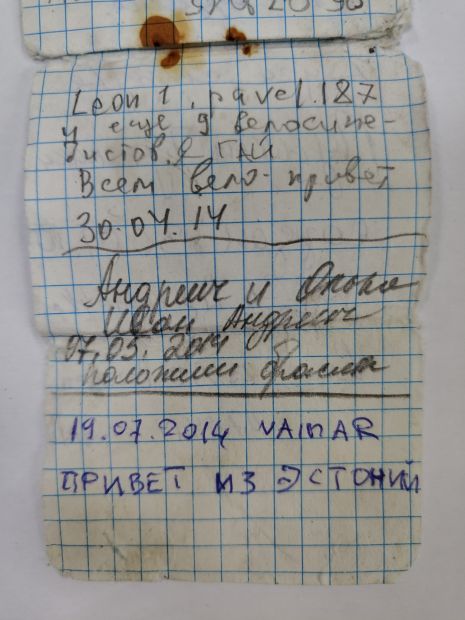 Leon 1, pavel.187
и еще 9 велосипе-
дистов.
Всем вело-привет
30.04.14
Андреич и
Иван Андреич
07.05.2014
положили
19.07.2014 VAINAR
ПРИВЕТ ИЗ ЭСТОНИЙ